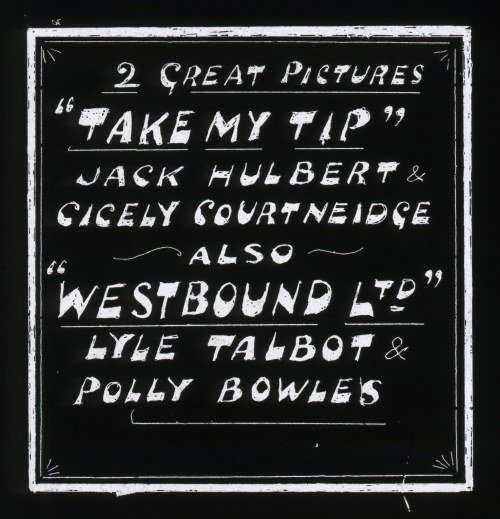 2 GREAT PICTURES
"TAKE MY TIP"
JACK HULBERT &
CICELY COURTNEIDGE
ALSO
"WESTBOUND LTD"
LYLE TALBOT &
POLLY BOWLES